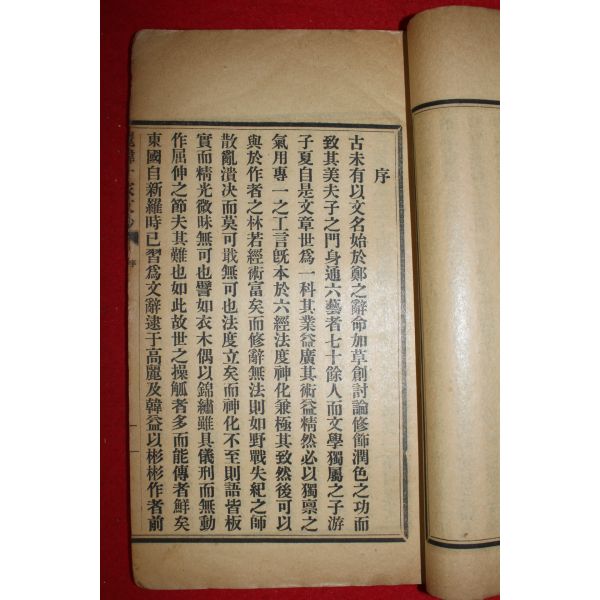 序
古未有以文名始於鄭之辭命加草創討論修飾潤色之功而
致其美夫子之門身通六藝者七十餘人而文學獨屬之子游
子夏自是文章世爲一科其業益廣其術益精然必以獨禀之
氣用專一之工言旣本於六經法度神化兼極其致然後可以
與於作者之林若經術富矣而修辭無法則如野戰失紀之師
散亂潰決而莫可戢無可也法度立矣而神化不至則語皆板
實而精光微昧無可也譬如衣木偶以錦繡雖具儀刑而無動
作屈伸之節夫其難也如此故世之操觚者多而能傳者鮮矣
東國自新羅時已習爲文辭逮于高麗及韓益以彬彬作者前
麗韓十家文鈔 序 一